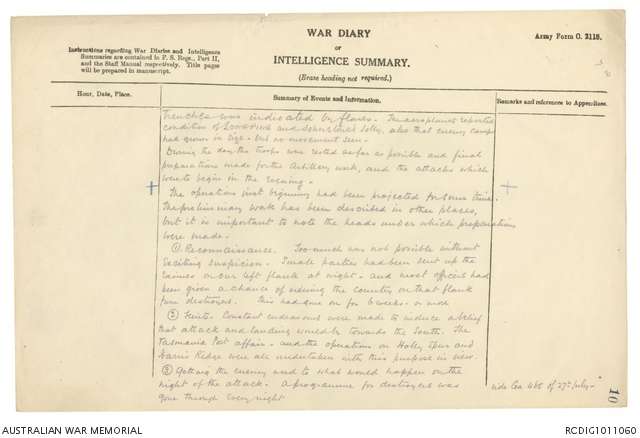 WAR DIARY
OR
INTELLIGENCE SUMMARY.
(Erase heading not required.)
Army Form C. 2118.
Instructions regarding War Diaries and Intelligence
Summaries are contained in F. S. Regs., Part II,
and the Staff Manual respectively. Title pages
will be prepared in manuscript.
Hour, Date, Place.
Summary of Events and Information.
Remarks and references to Appendices.
trenches was indicated by flares. The aeroplanes reported
condition of and Johnstons Jolly, also that enemy camps
had grown in size - but no movement seen.
During the day the troops were rested as far as possible and final
preparations made for the Artillery work, and the attacks which
were to begin in the evening.
The operations just beginning had been projected for some time.
The preliminary work has been described in other places,
but it is important to note the heads under which preparations
were made.
(1) Reconnaissance. Too much was not possible without
exciting suspicion. Small parties had been sent up the
ravines on our left flank at night - and most officers had
been given a chance of viewing the country on that flank
from destroyers. This had gone on for 6 weeks or more
(2) Feints. Constant endeavours were made to induce a belief
that attack and landing would be towards the South. The
Tasmania Post affair - and the operations on Holly Spur and
Harris Ridge were all undertaken with this purpose in view.
(3) Getting the enemy used to what would happen on the
night of the attack. A programme for destroyers was
gone through every night
vide 465 of 27th July -
10
AUSTRALIAN WAR MEMORIAL
RCDIG1011060